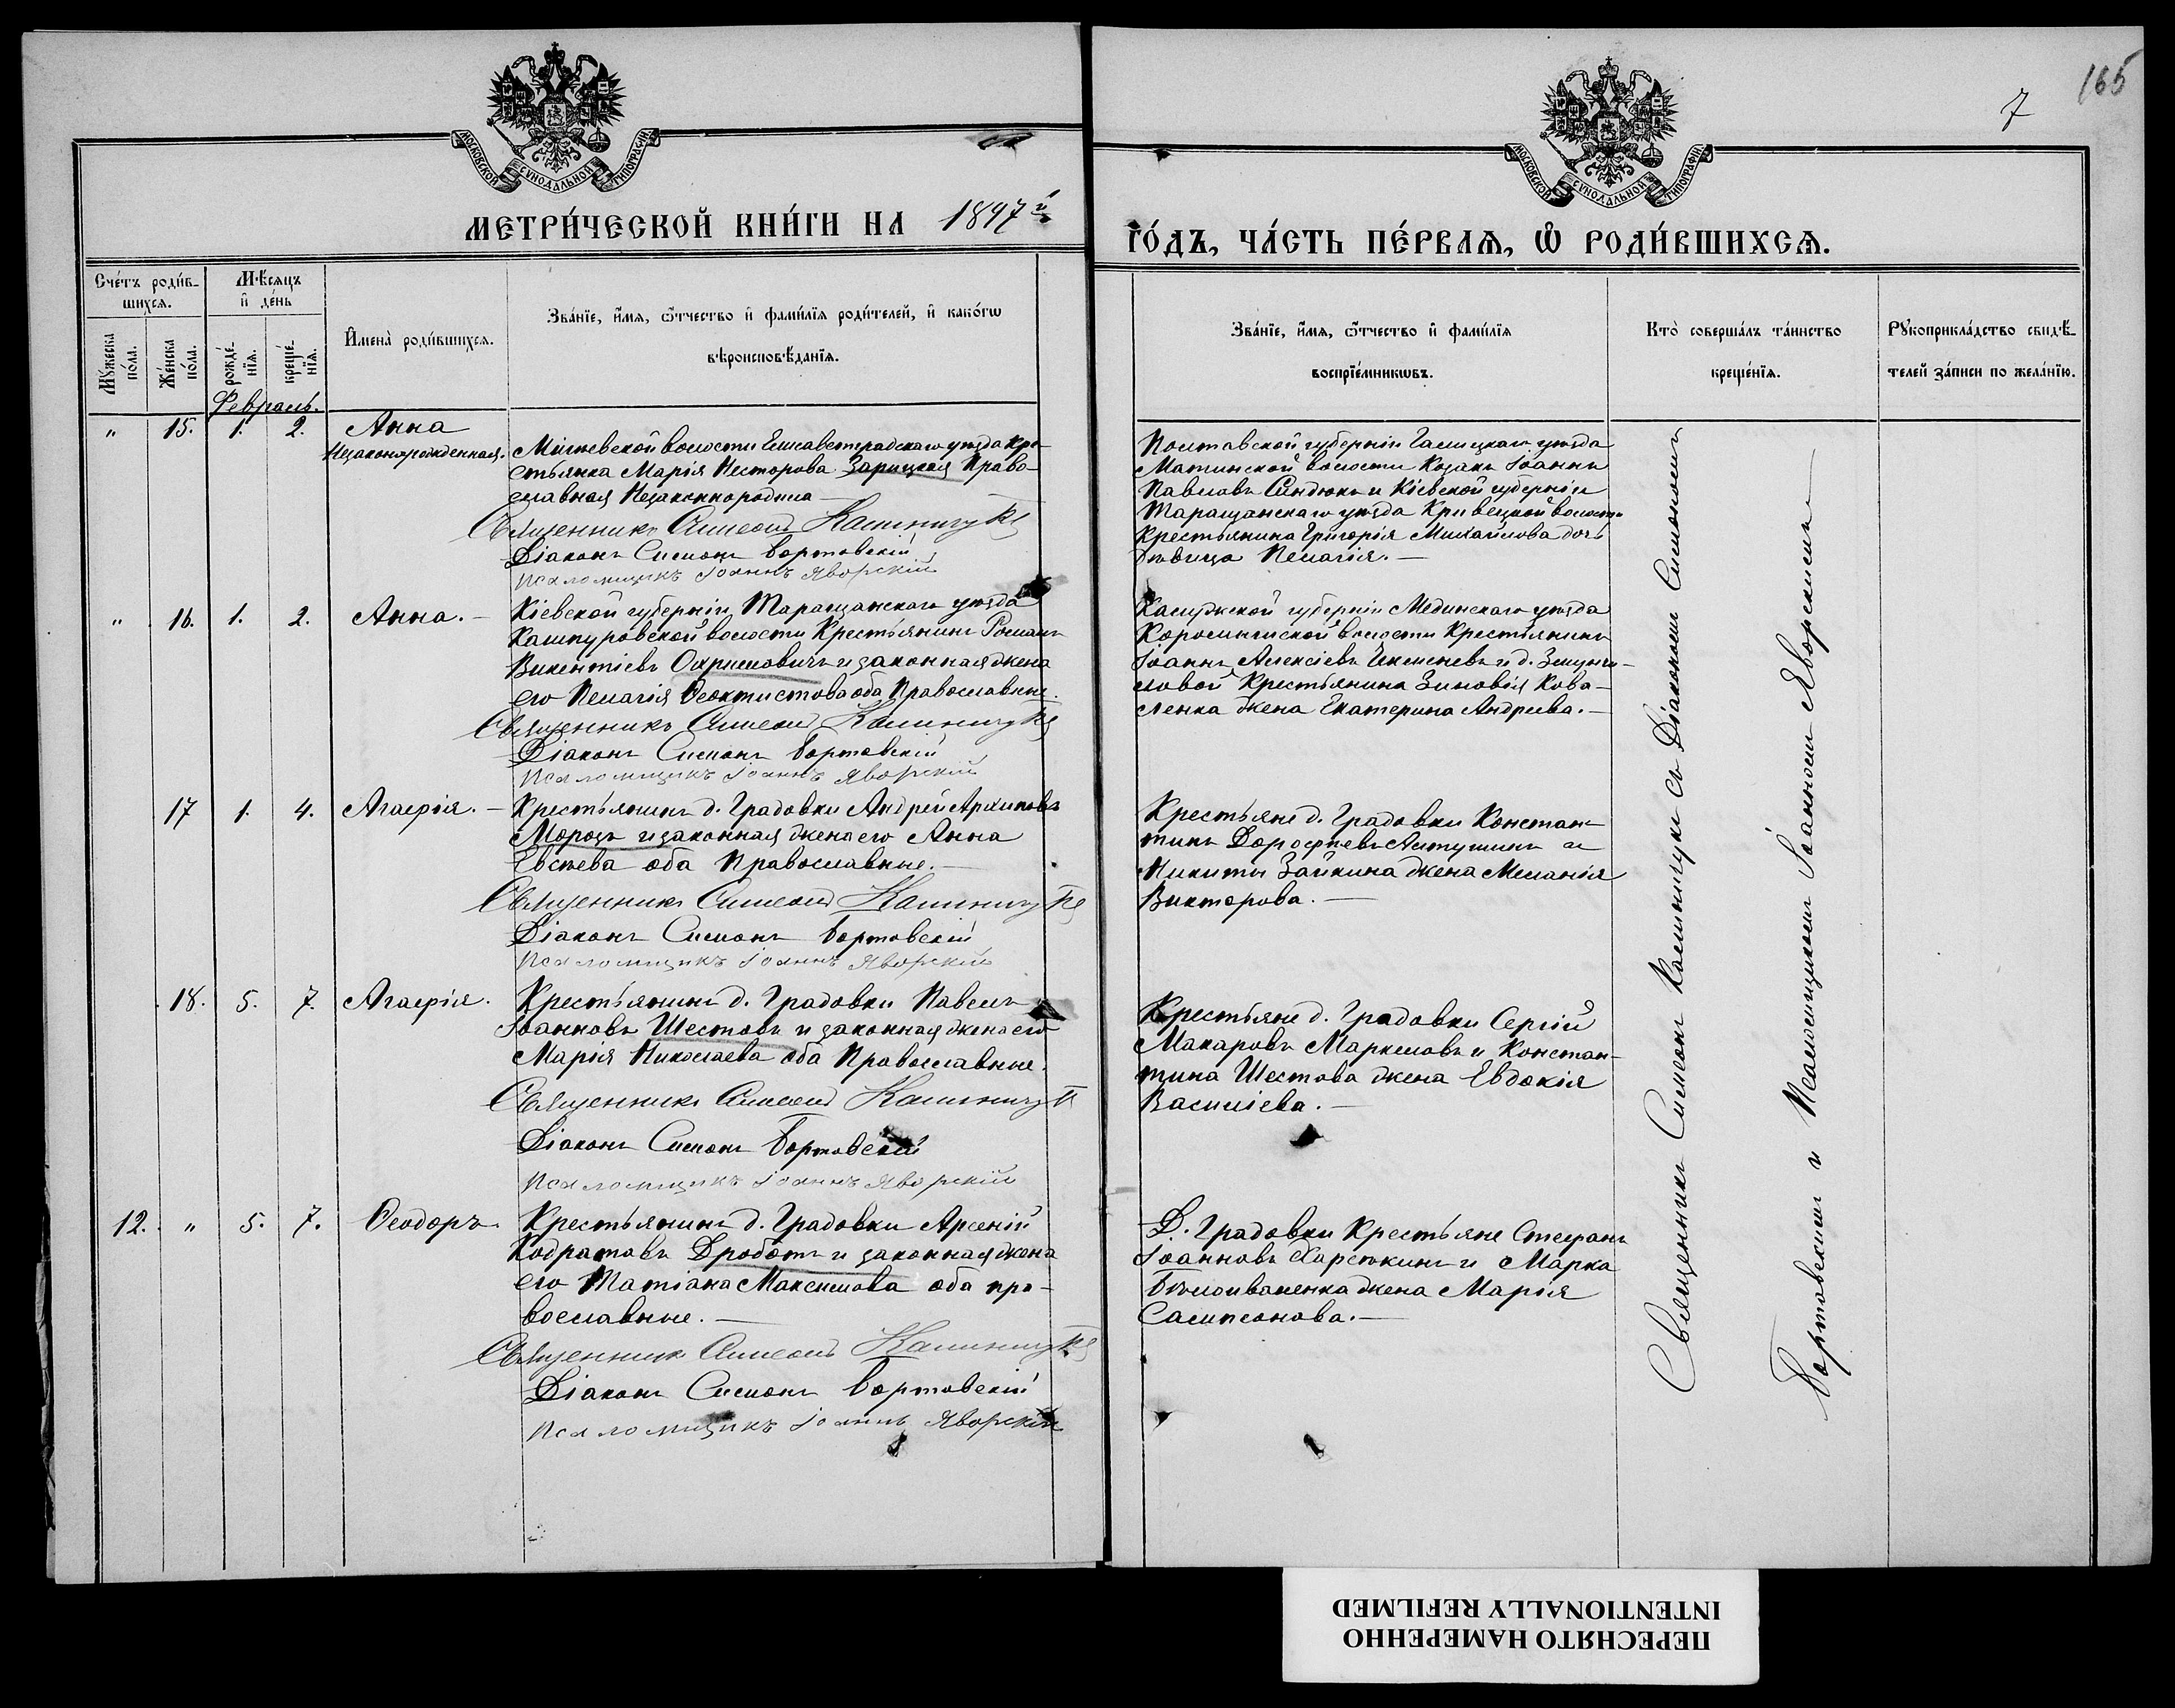 165
7
МОСКОВСКОЙ СУНОДАЛЬНОЙ ТИПОГРАФІИ.
МОСКОВСКОЙ СУНОДАЛЬНОЙ ТИПОГРАФІИ.
МЕТРИ́ЧЕСКОЙ КНИ́ГИ НА 1897й
ГО́ДЪ, ЧА́СТЬ ПЕ́РВАѦ, Ѡ РОДИ́ВШИХСѦ.
Сче́тъ роди́в-
шихсѧ.
Мѣсѧцъ
и де́нь
Мꙋ́жеска
по́ла.
Же́нска
по́ла.
рожде́-
нїѧ.
креще́-
нїѧ.
Имена̀ роди́вшихсѧ.
Зва́нїе, и́мѧ, ѻ́тчество и фамі́лїѧ роди́телей, и како́гѡ
вѣроисповѣ́данїѧ.
Зва́нїе, и́мѧ, ѻ́тчество и фамі́лїѧ
воспрїе́мникѡвъ.
Кто̀ соверша́лъ та́инство
креще́нїѧ.
Рꙋкоприкла́дство свидѣ́-
телей за́писи по жела́нїю.
Февраль.
" 15. 1. 2. Анна
Незаконорожденная.
Мигіевской волости Елисаветградскаго уѣзда Кре-
стьянка Марія Несторова Зарицкая Право-
славная Незаконнородила
Священникъ Симеонъ Калиничук
Діаконъ Симонъ Бортовскій
Псаломщикъ Іоаннъ Яворскій
Полтавской губерніи Гадяцкаго уѣзда
волости Козакъ Іоаннъ
Павловъ Синдюкъ и Кіевской губерніи
Таращанскаго уѣзда Кривецкой волости
Крестьянина Григорія Михайлова дочь
дѣвица Пелагія.
" 16. 1. 2. Анна.
Кіевской губерніи Таращанскаго уѣзда
Кашпуровской волости Крестьянинъ Романъ
Викентіевъ Охримовичъ и законная жена
его Пелагія Ѳеоктистова оба Православные.
Священникъ Симеонъ Калиничук
Діаконъ Симонъ Бортовскій
Псаломщикъ Іоаннъ Яворскій
Калужской губерніи Мединскаго уѣзда
волости Крестьянинъ
Іоаннъ Алексіевъ и д.
Крестьянина Зиновія Кова-
ленка жена Екатерина Андреева.
17 1. 4. Агафія.
Крестьянинъ д. Градовки Андрей Архиповъ
Морозъ и законная жена его Анна
Евсѣева оба Православные.
Священникъ Симеонъ Калиничук
Діаконъ Симонъ Бортовскій
Псаломщикъ Іоаннъ Яворскій
Крестьяне д. Градовки Констан-
тинъ Дорофѣевъ и
Никиты Зайкина жена Меланія
Викторова.
18. 5. 7. Агафія.
Крестьянинъ д. Градовки Павелъ
Іоанновъ Шестовъ и законная жена его
Марія Николаева оба Православные.
Священникъ Симеонъ Калиничук
Діаконъ Симонъ Бортовскій
Псаломщикъ Іоаннъ Яворскій
Крестьяне д. Градовки Сергій
Макаровъ Маркеловъ и Констан-
тина Шестова жена Евдокія
Василіева.
12. " 5. 7. Ѳеодоръ.
Крестьянинъ д. Градовки Арсеній
Кодратовъ Дроботъ и законная жена
его Татіана Максимова оба пра-
вославные.
Священник Симеонъ Калиничук
Діаконъ Симонъ Бортовскій
Псаломщикъ Іоаннъ Яворскій
Д. Градовки Крестьяне Стефанъ
Іоанновъ Карсѣкинъ и Марка
Бѣлоиваненка жена Марія
Сампсонова.
Священникъ Симеонъ Калиничукъ съ Діакономъ Симономъ
Бортовскимъ и Псаломщикомъ Іоанномъ Яворскимъ
ПЕРЕСНЯТО НАМЕРЕННО
INTENTIONALLY REFILMED